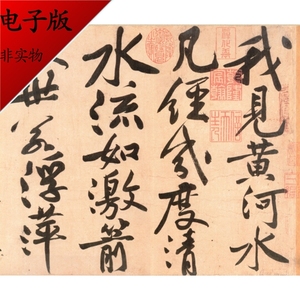 电子版
非实物
我见黄河水
凡经几度清
水流如激箭
世若浮萍